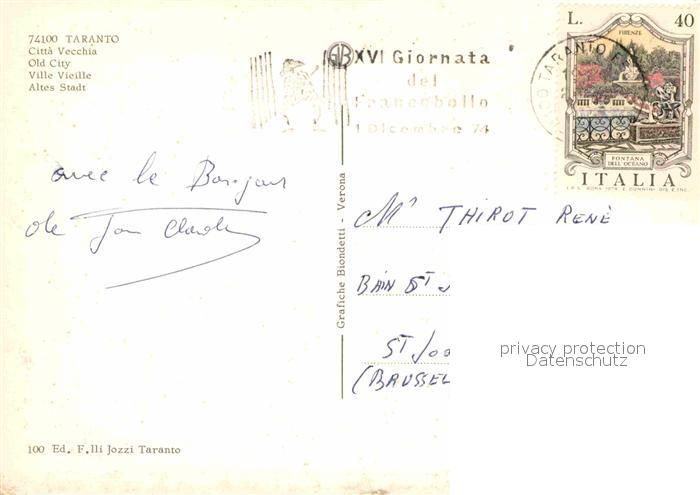 74100 TARANTO
Città Vecchia
Old City
Ville Vieille
Altes Stadt
XVI Giornata
del
Francobollo
1 Dicembre 74
TARANTO
L. 40
FIRENZE
FONTANA
DELL'OCEANO
ITALIA
I.P.S. ROMA 1974 E. DONNINI DIS. E INC.
avec le Bonjour
de
Grafiche Biondetti - Verona
Mr THIROT RENÈ
BAIN ST
ST Joo
(BRUSSEL
privacy protection
Datenschutz
100 Ed. F.lli Jozzi Taranto